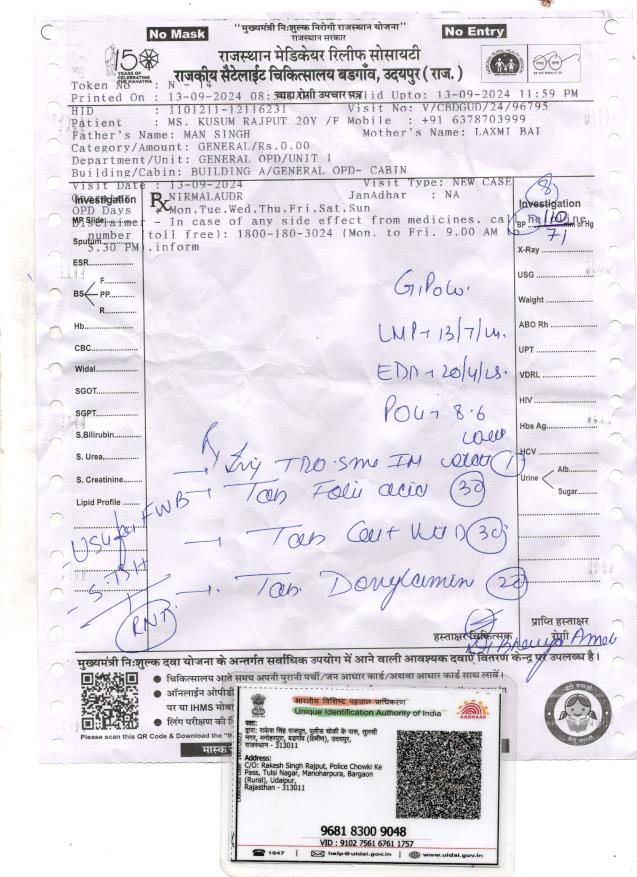 No Mask
"मुख्यमंत्री निःशुल्क निरोगी राजस्थान योजना"
राजस्थान सरकार
No Entry
150
YEARS OF
CELEBRATING
THE MAHATMA
राजस्थान मेडिकेयर रिलीफ सोसायटी
राजकीय सैटेलाईट चिकित्सालय बडगाँव, उदयपुर (राज.)
Token No : N - 14
Printed On : 13-09-2024 08: बाह्य रोगी उपचार पत्र Valid Upto: 13-09-2024 11:59 PM
HID : 1101211-12116231 Visit No: V/CBDGUD/24/96795
Patient : MS. KUSUM RAJPUT 20Y /F Mobile : +91 6378703999
Father's Name: MAN SINGH Mother's Name: LAXMI BAI
Category/Amount: GENERAL/Rs.0.00
Department/Unit: GENERAL OPD/UNIT 1
Building/Cabin: BUILDING A/GENERAL OPD- CABIN
Visit Date : 13-09-2024 Visit Type: NEW CASE
NIRMALAUDR JanAadhar : NA
OPD Days Mon,Tue,Wed,Thu,Fri,Sat,Sun
Disclaimer - In case of any side effect from medicines. call helpline
number (toll free): 1800-180-3024 (Mon. to Fri. 9.00 AM to
5.30 PM).inform
Investigation
MP Slide
Sputum
ESR
BS
F
PP
R
Hb
CBC
Widal
SGOT
SGPT
S.Bilirubin
S. Urea
S. Creatinine
Lipid Profile
Rx
8
Investigation
BP 110 mm of Hg
71
X-Ray
USG
Waight
ABO Rh
UPT
VDRL
HIV
Hbs Ag
HCV
Urine
Alb.
Sugar
LMP → 13/7/24
EDD → 20/4/25
POG → 8.6
Rx
→ Inj TT 0.5ml IM 1
→ Tab Folic acid 30
→ Tab 30
→ Tab. Doxylamine 20
FWB
RNT
हस्ताक्षर चिकित्सक
प्राप्ति हस्ताक्षर
रोगी
मुख्यमंत्री निःशुल्क दवा योजना के अन्तर्गत सर्वाधिक उपयोग में आने वाली आवश्यक दवाएं वितरण केन्द्र पर उपलब्ध है।
● चिकित्सालय आते समय अपनी पुरानी पर्ची/जन आधार कार्ड/अथवा आधार कार्ड साथ लावें।
● ऑनलाईन ओपीडी
पर या IHMS मोबा
● लिंग परीक्षण की
Please scan this QR Code & Download the
मास्क
भारतीय विशिष्ट पहचान प्राधिकरण
Unique Identification Authority of India
AADHAAR
पता:
द्वारा: राकेश सिंह राजपूत, पुलीस चौकी के पास, तुलसी
नगर, मनोहरपुरा, बडगाँव (ग्रामीण), उदयपुर,
राजस्थान - 313011
Address:
C/O: Rakesh Singh Rajput, Police Chowki Ke
Pass, Tulsi Nagar, Manoharpura, Bargaon
(Rural), Udaipur,
Rajasthan - 313011
9681 8300 9048
VID : 9102 7561 6761 1757
1947 | help@uidai.gov.in | www.uidai.gov.in